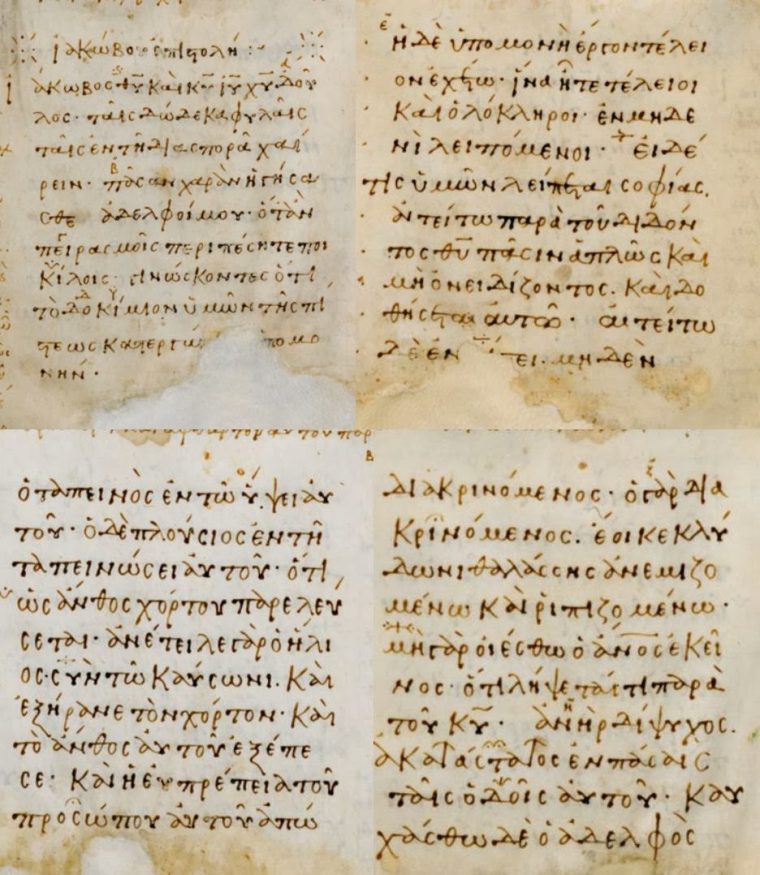 ἰακώβου ἐπιστολή :
ἰάκωβος θ̅υ̅ καὶ κ̅υ̅ ἰ̅υ̅ χ̅υ̅ δοῦ
λος· ταῖς δώδεκα φυλαῖς
ταῖς ἐν τῆ διασπορᾶ χαί
ρειν· πᾶσαν χαρὰν ἡγήσα
σθε ἀδελφοί μου· ὅταν
πειρασμοῖς περιπέσητε ποι
κίλοις· γινώσκοντες ὅτι
τὸ δοκίμιον ὑμῶν τῆς πί
στεως κατεργά πομο
νήν·
ἡ δὲ ὑπομονὴ ἔργον τέλει
ον ἐχέτω· ἵνα ἦτε τέλειοι
καὶ ὁλόκληροι· ἐν μηδε
νὶ λειπόμενοι· εἰ δέ
τις ὑμῶν λείπεται σοφίας.
αἰτείτω παρὰ τοῦ διδόν
τος θ̅υ̅ πᾶσιν ἁπλῶς καὶ
μὴ ὀνειδίζοντος. καὶ δο
θήσεται αὐτῶ· αἰτείτω
δὲ ἐν τει. μηδὲν
ὁ ταπεινὸς ἐν τῶ ὕψει αὐ
τοῦ· ὁ δὲ πλούσιος ἐν τῆ
ταπεινώσει αὐτοῦ· ὅτι
ὡς ἄνθος χόρτου παρελεύ
σεται· ἀνέτειλε γὰρ ὁ ἥλι
ος· σὺν τῶ καύσωνι. καὶ
ἐξήρανε τὸν χόρτον· καὶ
τὸ ἄνθος αὐτοῦ ἐξέπε
σε· καὶ ἡ εὐπρέπεια τοῦ
προσώπου αὐτοῦ ἀπώ
διακρινόμενος· ὁ γὰρ δια
κρινόμενος. ἔοικε κλύ
δωνι θαλάσσης ἀνεμιζο
μένω καὶ ῥιπιζομένω·
μὴ γὰρ οἰέσθω ὁ α̅ν̅ο̅ς ἐκεῖ
νος· ὅτι λήψεταί τι παρὰ
τοῦ κ̅υ̅· ἀνὴρ δίψυχος.
ἀκατάστατος ἐν πάσαις
ταῖς ὁδοῖς αὐτοῦ· καυ
χάσθω δὲ ὁ ἀδελφὸς